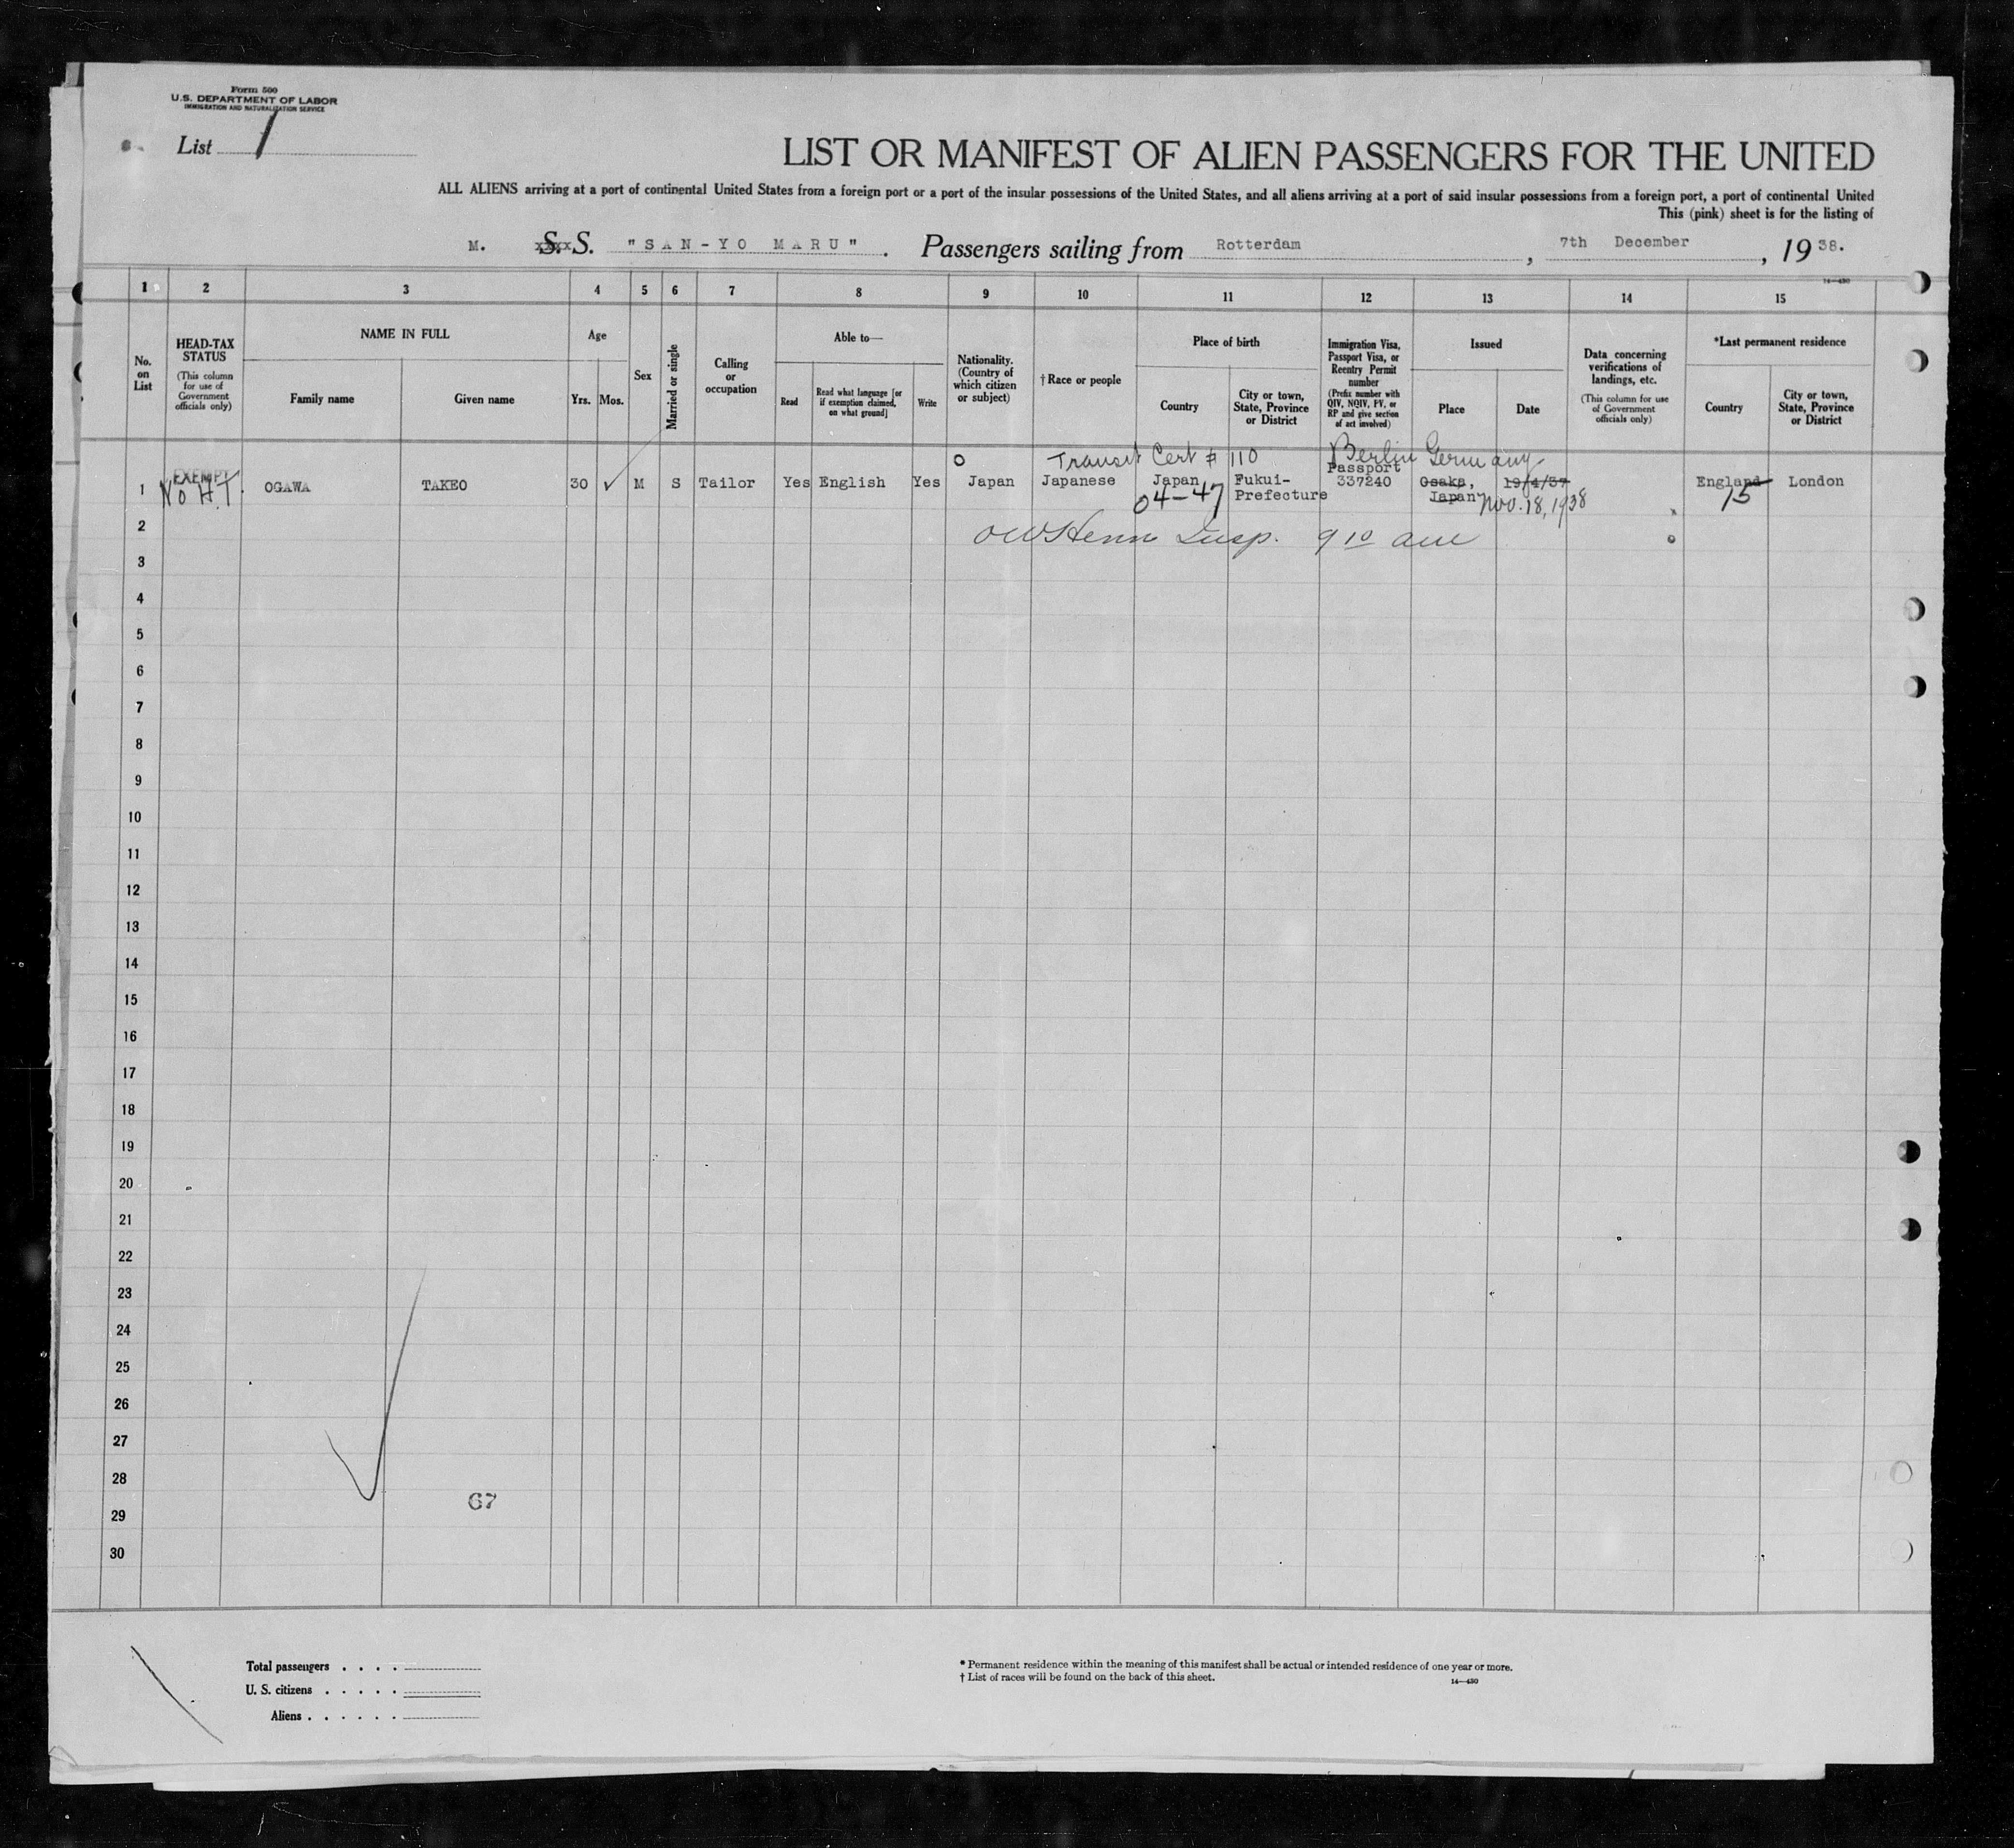 Form 500
U.S. DEPARTMENT OF LABOR
IMMIGRATION AND NATURALIZATION SERVICE
List 1
LIST OR MANIFEST OF ALIEN PASSENGERS FOR THE UNITED
ALL ALIENS arriving at a port of continental United States from a foreign port or a port of the insular possessions of the United States, and all aliens arriving at a port of said insular possessions from a foreign port, a port of continental United
This (pink) sheet is for the listing of
M. S. S. "SAN-YO MARU". Passengers sailing from Rotterdam, 7th December, 1938.
14—430
1 2 3 4 5 6 7 8 9 10 11 12 13 14 15
No. on List
HEAD-TAX STATUS
(This column for use of Government officials only)
NAME IN FULL
Family name
Given name
Age
Yrs. Mos.
Sex
Married or single
Calling or occupation
Able to—
Read
Read what language [or if exemption claimed, on what ground]
Write
Nationality. (Country of which citizen or subject)
†Race or people
Place of birth
Country
City or town, State, Province or District
Immigration Visa, Passport Visa, or Reentry Permit number
(Prefix number with QIV, NQIV, PV, or RP and give section of act involved)
Issued
Place
Date
Data concerning verifications of landings, etc.
(This column for use of Government officials only)
*Last permanent residence
Country
City or town, State, Province or District
Transit Cert # 110 Berlin Germany
EXEMPT Passport
1 No H.T. OGAWA TAKEO 30 ✓ M S Tailor Yes English Yes Japan Japanese Japan Fukui- 337240 Osaka, 19/4/37 England London
04-47 Prefecture Japan Nov. 18, 1938 15
2 Insp. 9 10
3
4
5
6
7
8
9
10
11
12
13
14
15
16
17
18
19
20
21
22
23
24
25
26
27
28
67
29
30
Total passengers . . . .
U. S. citizens . . . . .
Aliens . . . . . .
* Permanent residence within the meaning of this manifest shall be actual or intended residence of one year or more.
† List of races will be found on the back of this sheet.
14—430